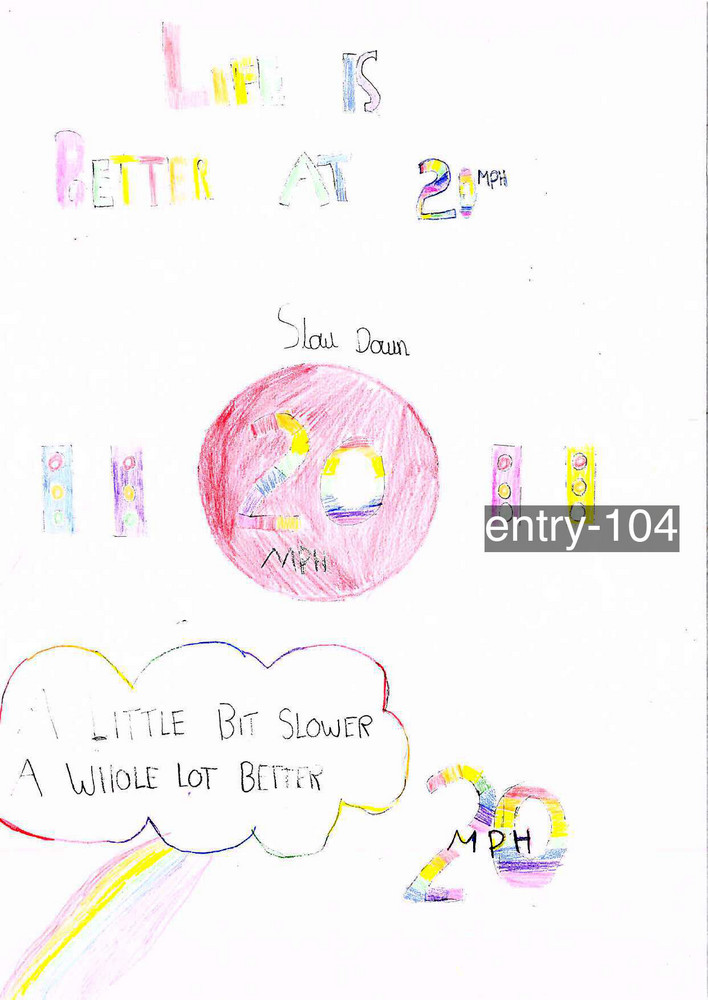 LIFE IS
BETTER AT 20 MPH
Slow Down
20
MPH
entry-104
A LITTLE BIT SLOWER
A WHOLE LOT BETTER
20
MPH